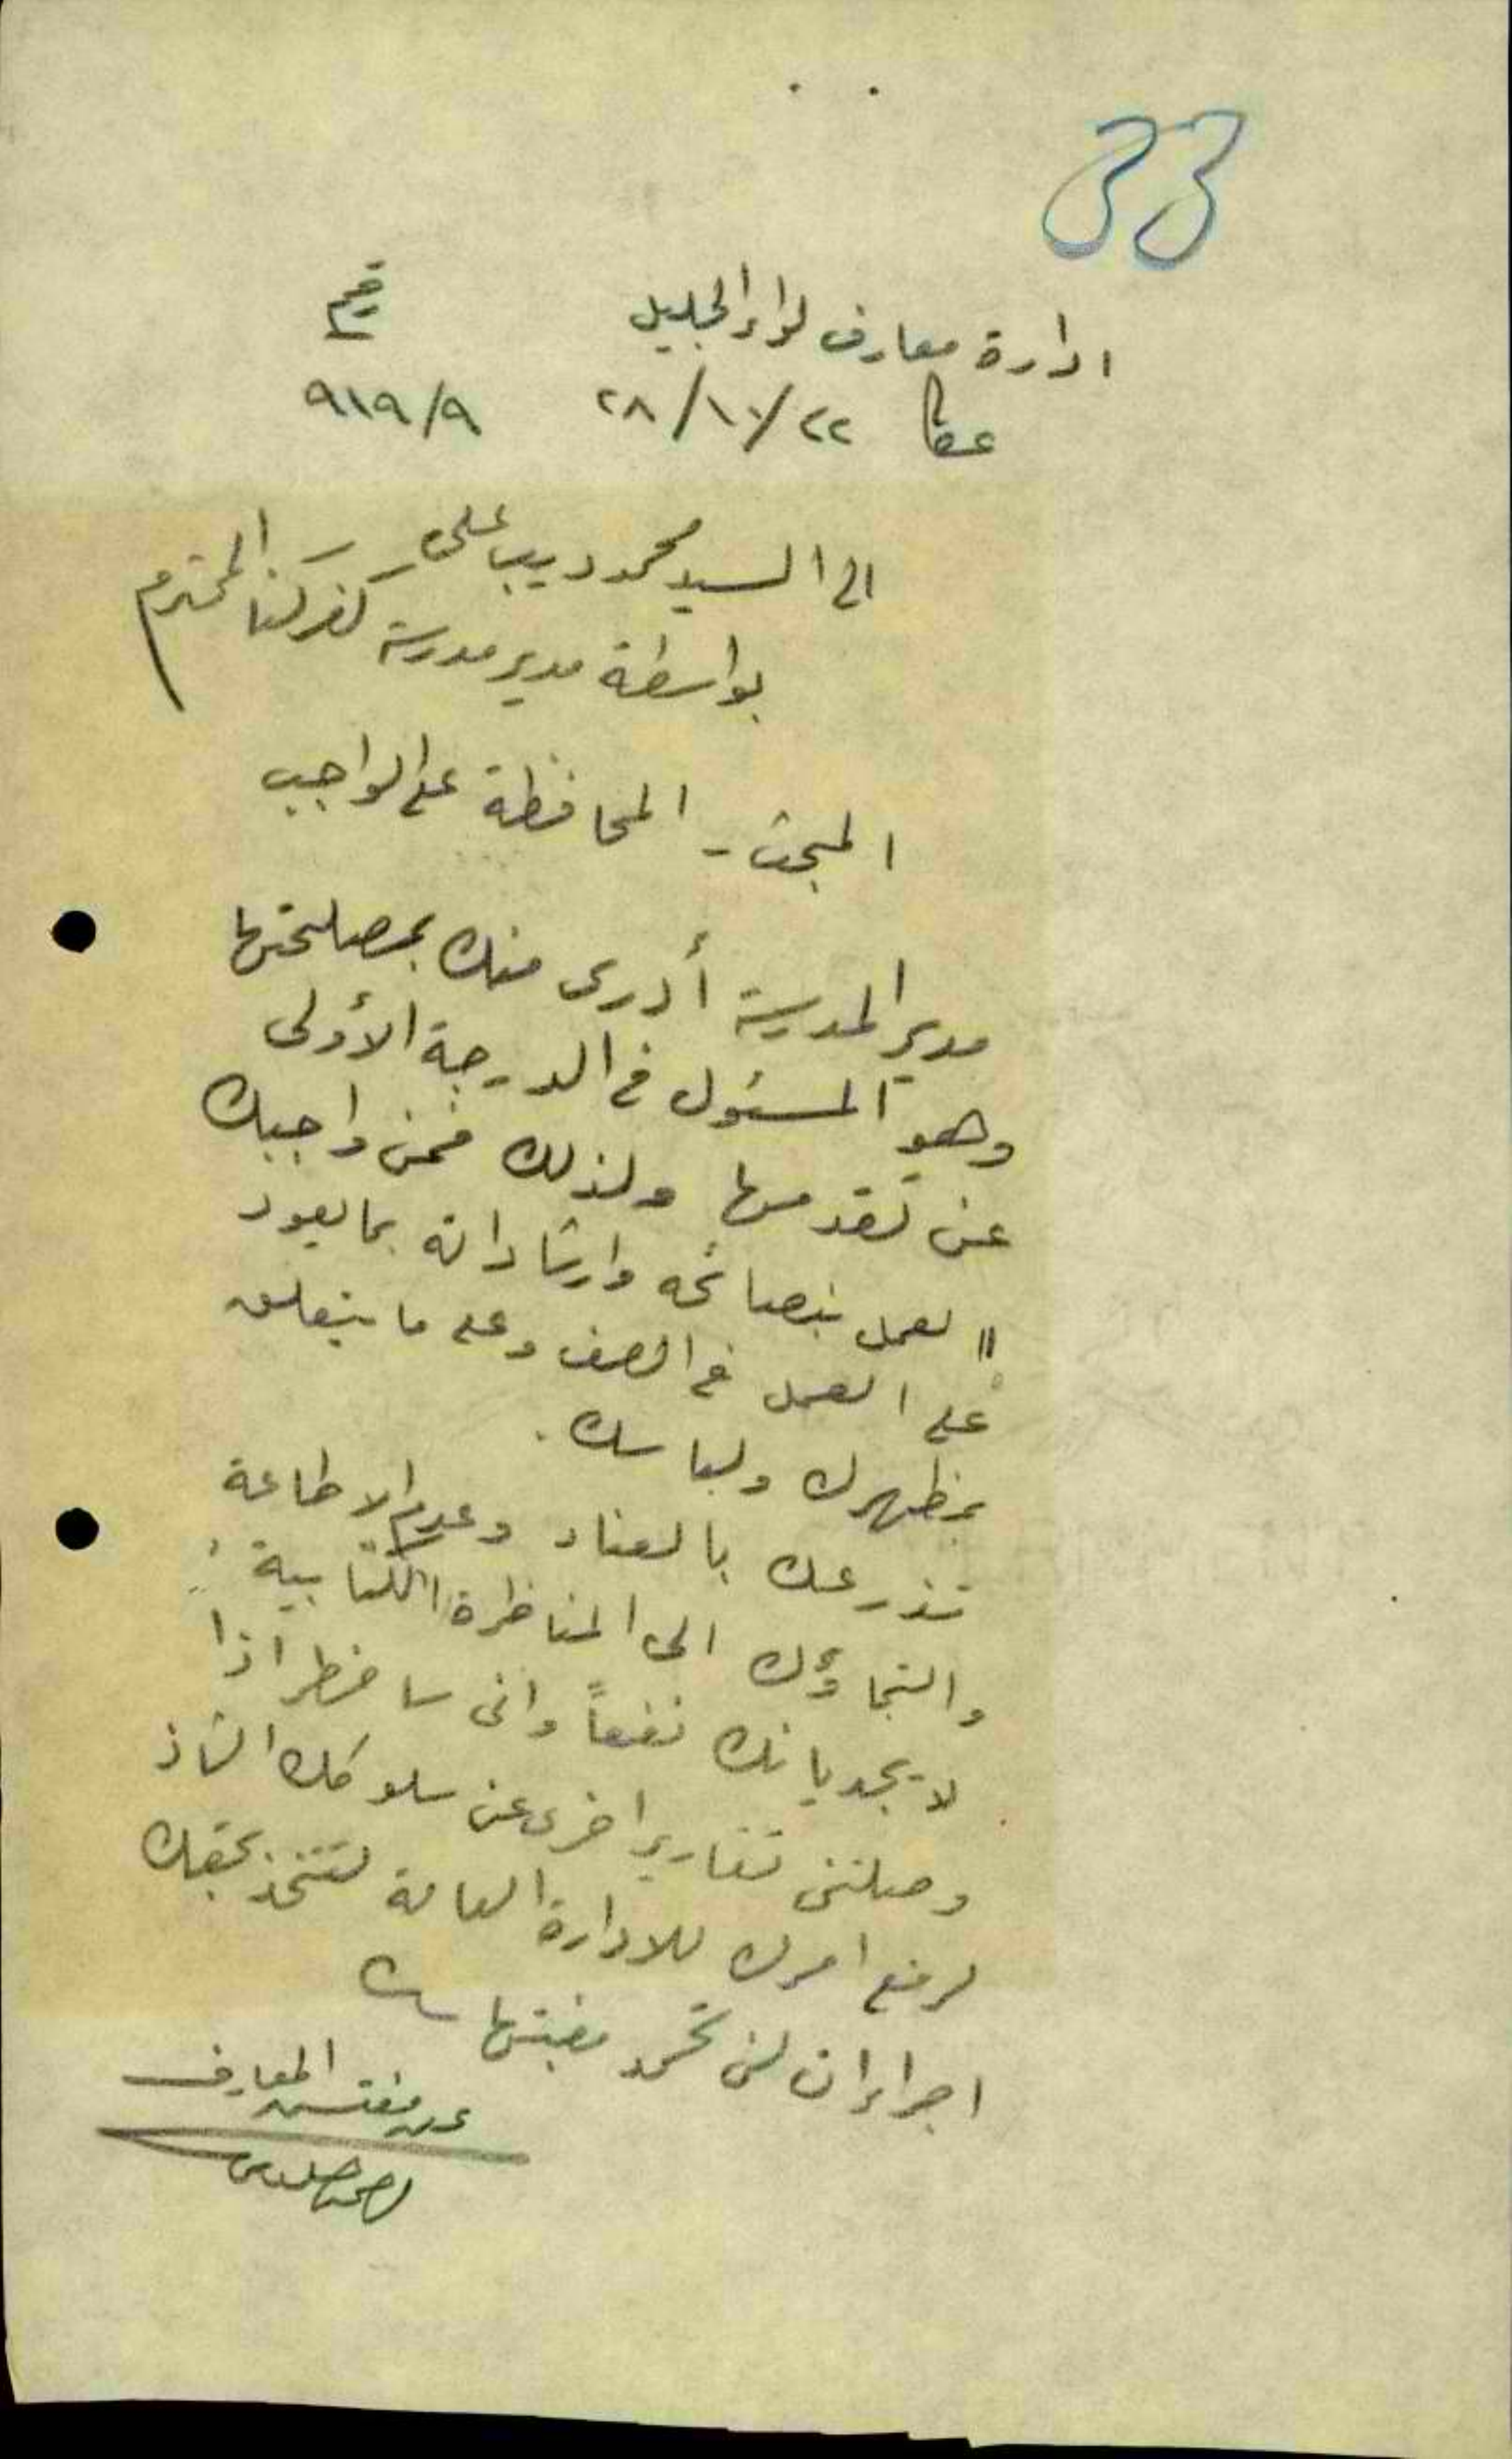 33
ادارة معارف لواء الجليل رقم
عكا ٢٢/١٠/٢٨ ٩١٩/٩
الى السيد محمد ديب علي
بواسطة مدير مدرسة كفركنا المحترم
المبحث - المحافظة على الواجب
مدير المدرسة أدرى منك بمصلحتها
وهو المسئول في الدرجة الأولى
عن تقدمها ولذلك فمن واجبك
العمل بنصائحه وارشاداته بما يعود
على العمل في الصف وعلى ما يتعلق
بمظهرك ولباسك .
تذرعك بالعناد وعدم الاطاعة
والتجاؤك الى المناظرة الكتابية
لا يجديانك نفعاً واني سأضطر اذا
وصلتني تقارير اخرى عن سلوكك الشاذ
لرفع امرك للادارة العامة لتتخذ بحقك
اجراءات لن تحمد مغبتها
عن مفتش المعارف